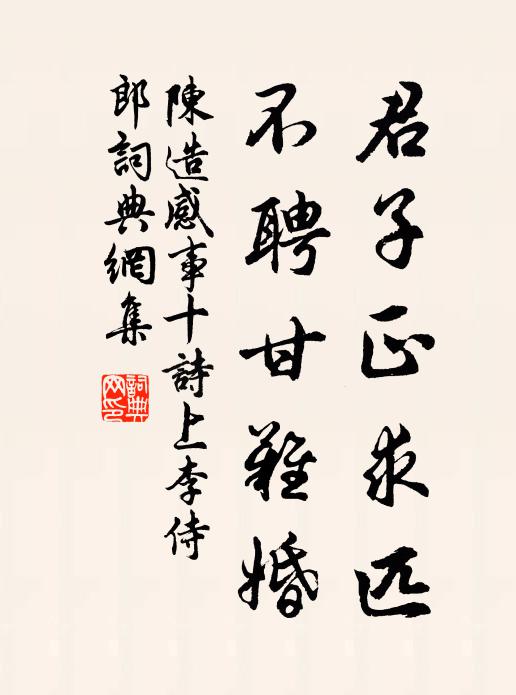 君子正求匹
不聘甘難婚
陳造感事十詩上李侍
郎詞典網集
詞典网印